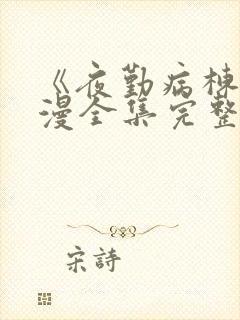 《夜勤病栋
漫全集完整
宋詩